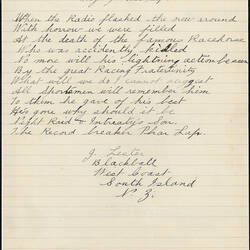 When the Radio flashed the news around
With horrow we were filled
At the death of the famous Racehorse
Who was accidently killed
To more will his lightning action be seen
By the great Racing Fraternity
What will we do I cannot suggest
All Sportsmen will remember him
To them he gave of his best
He's gone why should it be
Night Raid & Entreaty's Son.
The Record breaker Phar Lap.
J. Lester
Blackball
West Coast
South Island
N. Z.